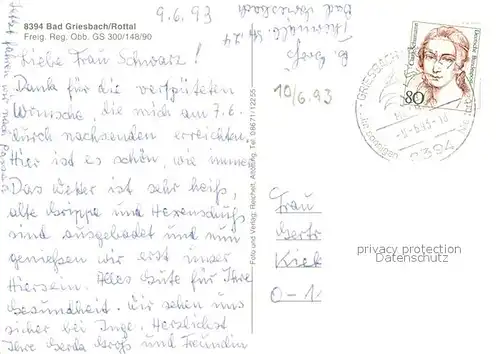 8394 Bad Griesbach/Rottal
Freig. Reg. Obb. GS 300/148/90
9.6.93
Liebe Frau Schwarz!
Dank für die verspäteten
Wünsche, die mich am 7.6.
durch nachsenden erreichten.
Hier ist es schön, wie immer
Das Wetter ist sehr heiß,
alte Grippe und Hexenschuß
sind ausgebadet und nun
genießen wir erst unser
Hiersein. Alles Gute für Ihre
Gesundheit. Wir sehen uns
sicher bei Inge. Herzlichst
Ihre Gerda und Freundin
jetzt fahren wir nach Passau
Foto und Verlag: Reichert, Altötting, Tel. 08671/12255
Bad Griesbach
10/6.93
Deutsche Bundespost
80
GRIESBACH
8394
Frau
Gertr
Kiek
O-1
privacy protection
Datenschutz